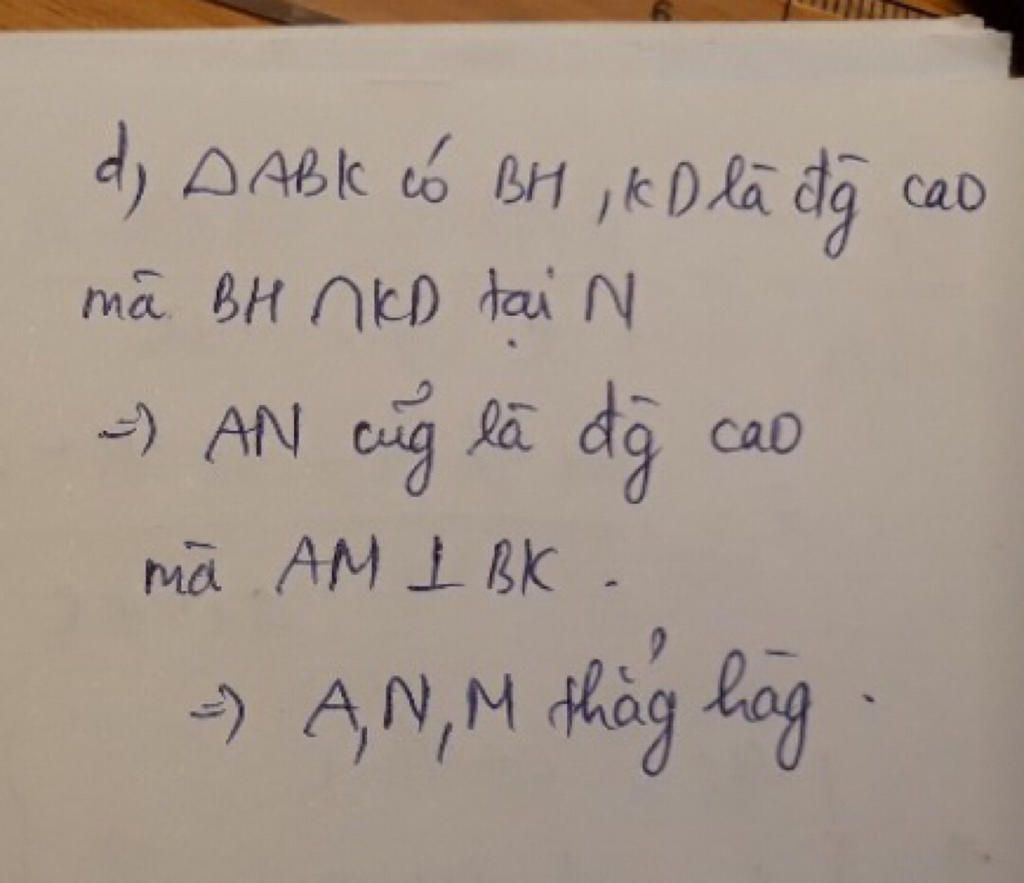 d, △ABK có BH, KD là đg̀ cao
mà BH ∩ KD tại N
=> AN cũg là đg̀ cao
mà AM ⊥ BK.
=> A, N, M thẳg hàg.